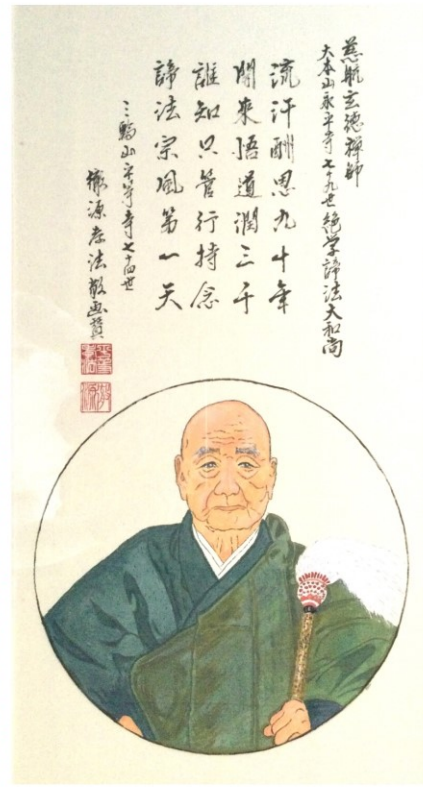 慈航玄徳禅師
大本山永平寺七十九世絶学諦法大和尚
流汗酬恩九十年
開来悟道潤三千
誰知只管行持念
諦法宗風第一天
山平等寺七十四世
徹源孝法敬画賛